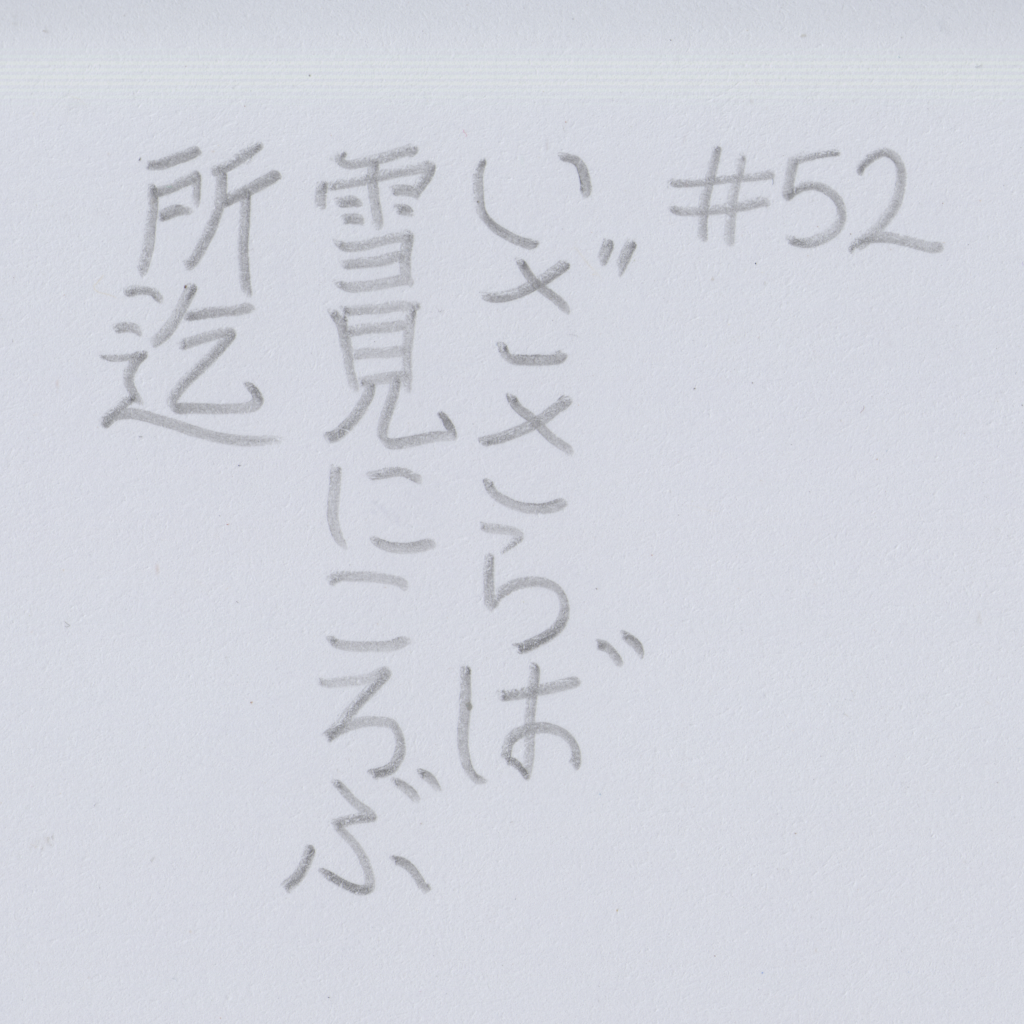 #52
いざさらば
雪見にころぶ
所迄